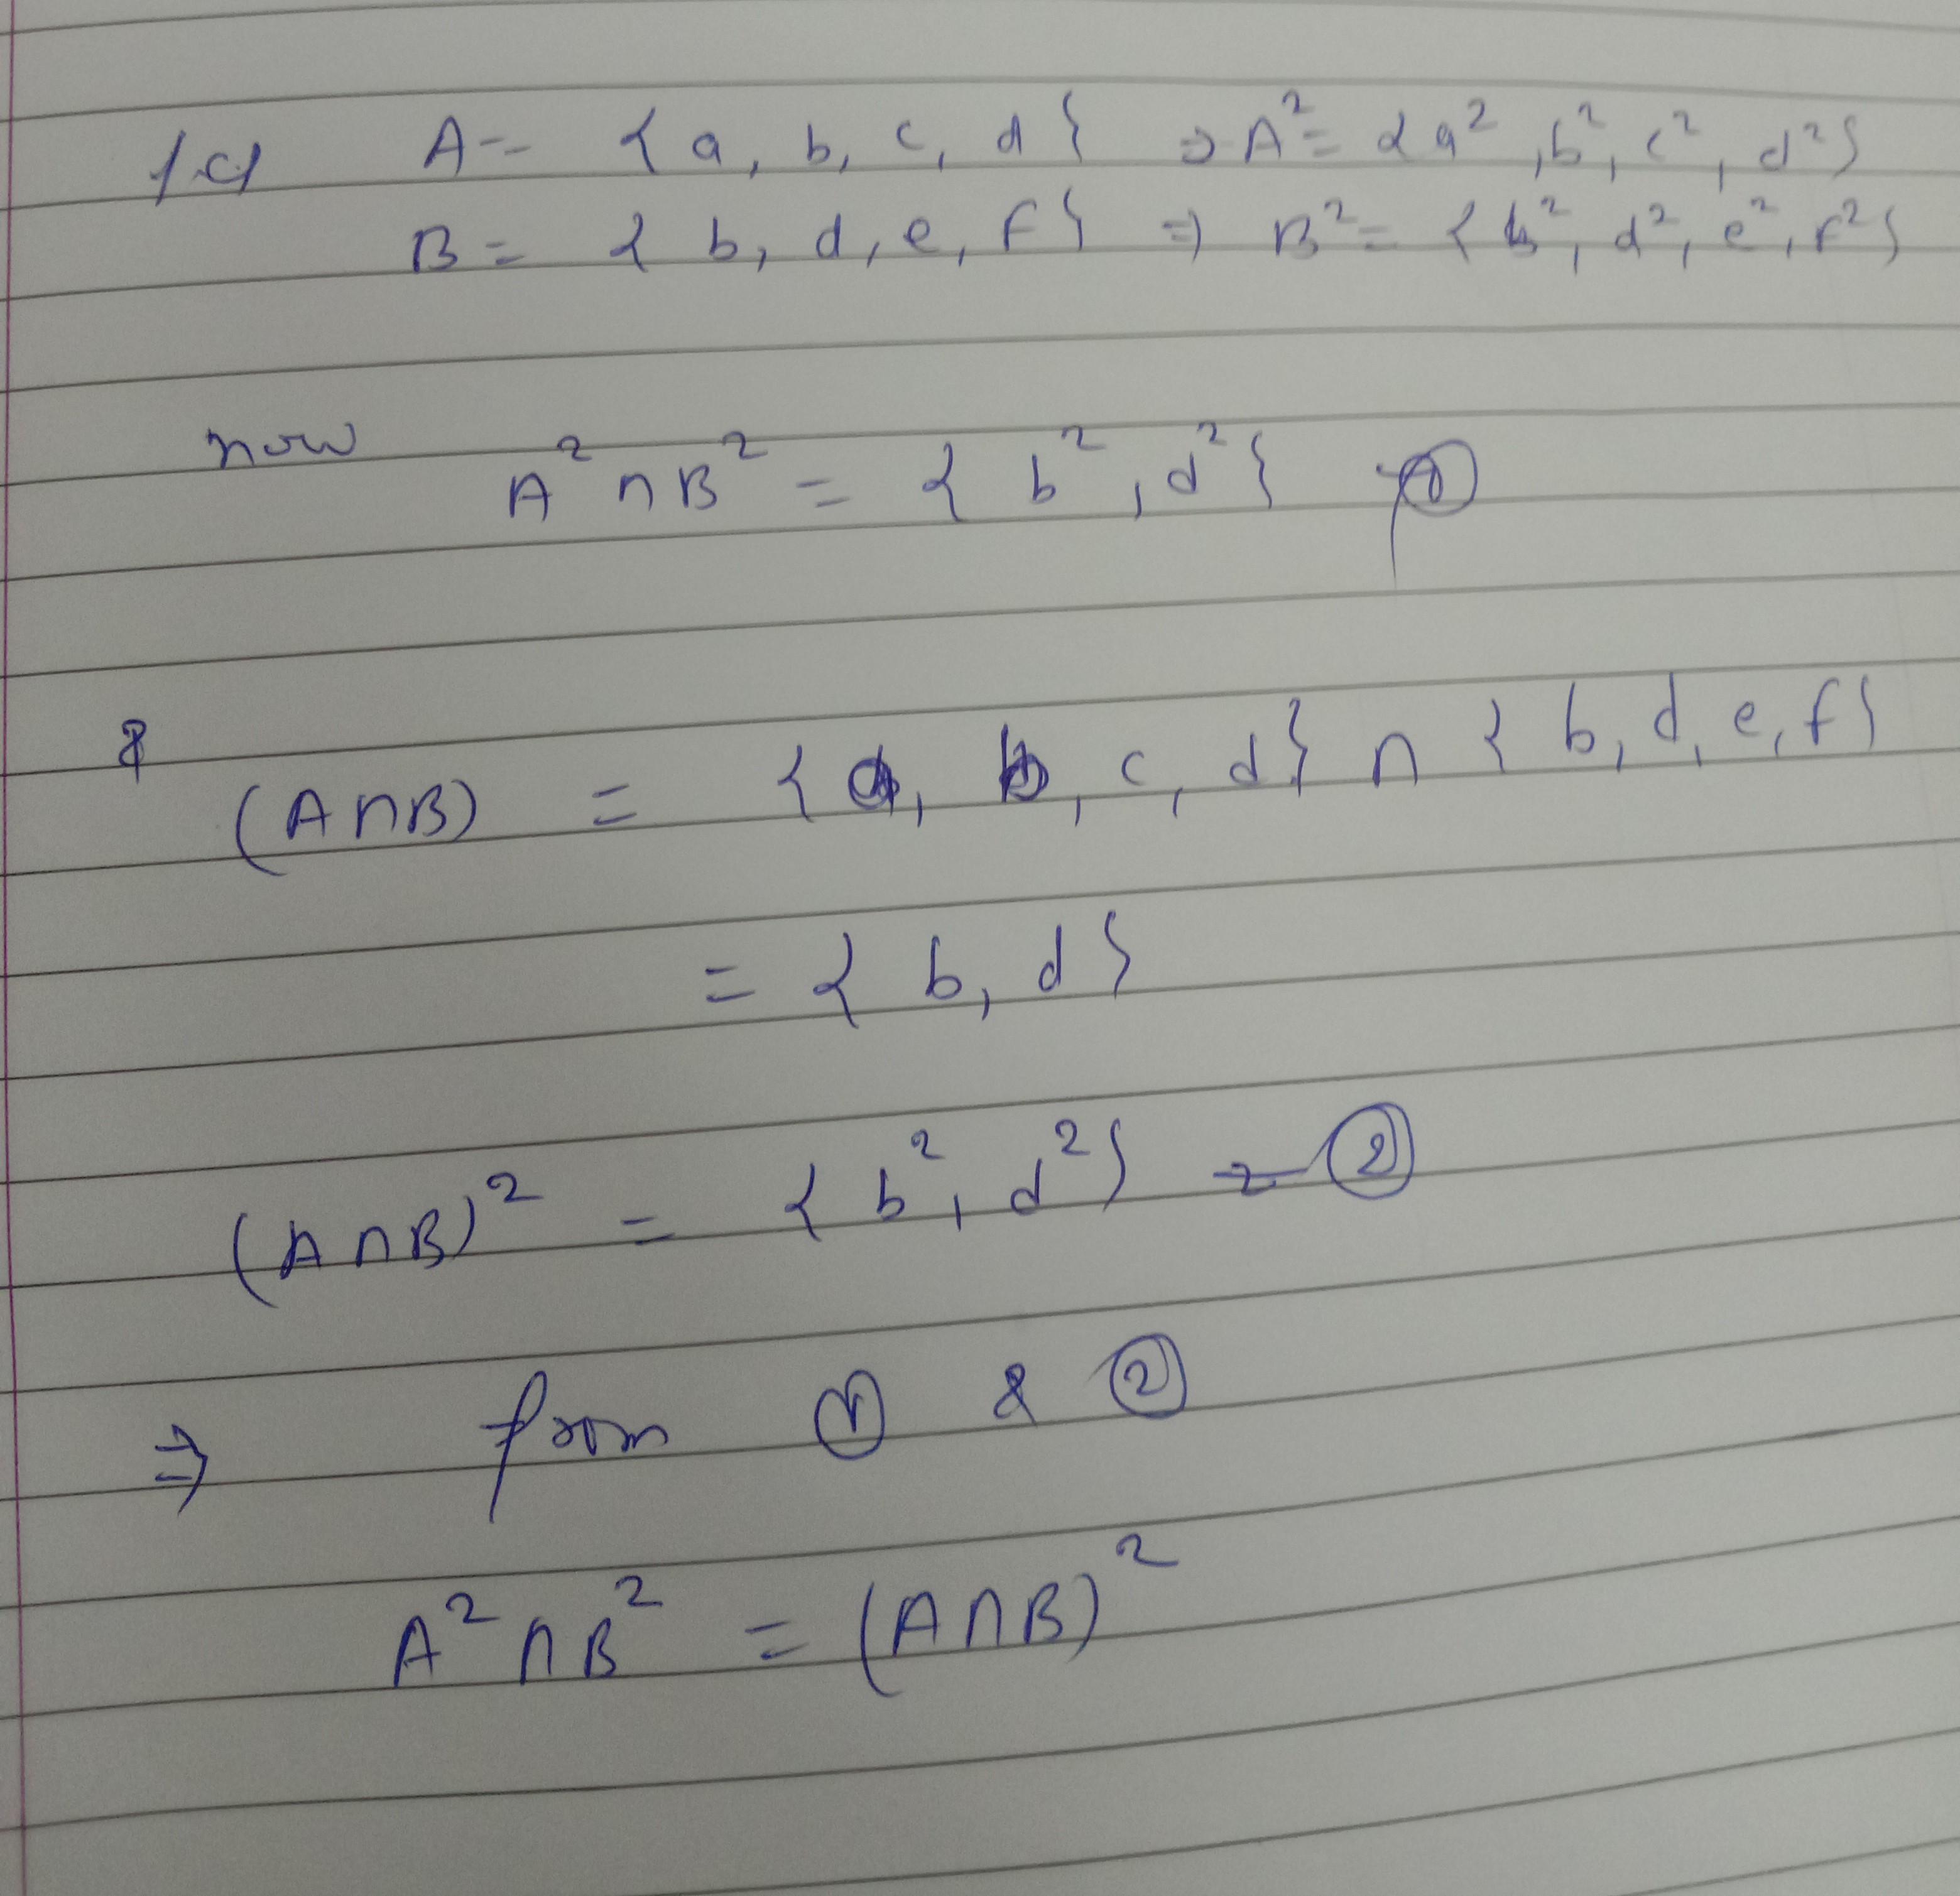 A = { a, b, c, d } ⇒ A² = { a², b², c², d² }
B = { b, d, e, f } ⇒ B² = { b², d², e², f² }
now
A² ∩ B² = { b², d² } ①
&
(A∩B) = { a, b, c, d } ∩ { b, d, e, f }
= { b, d }
(A∩B)² = { b², d² } - ②
⇒ from ① & ②
A² ∩ B² = (A∩B)²